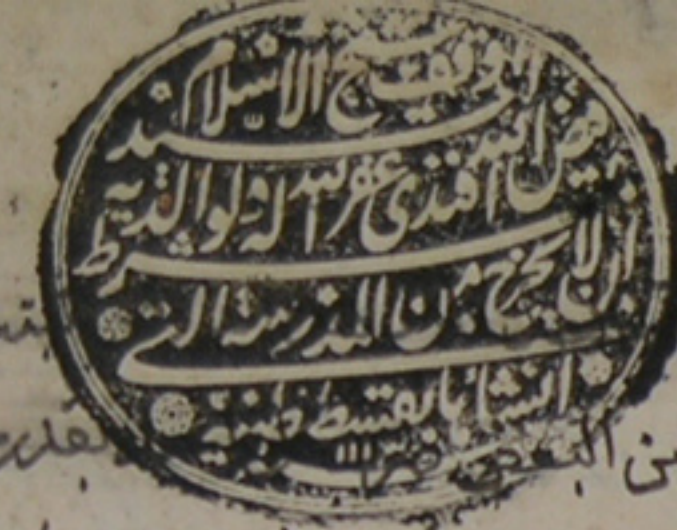 وقف شيخ الاسلام السيد
فيض الله افندى غفر الله له ولوالديه
بشرط ان لا يخرج من المدرسة التى
انشاها بقسطنطينية
سنة